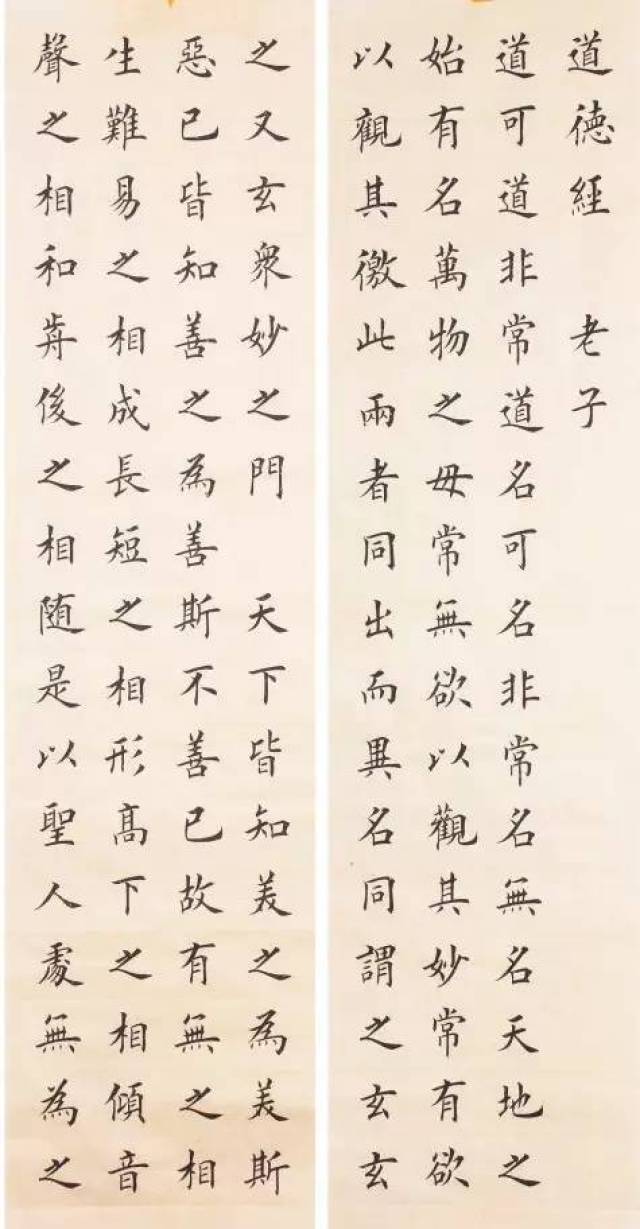 道德經 老子
道可道非常道名可名非常名無名天地之
始有名萬物之母常無欲以觀其妙常有欲
以觀其徼此兩者同出而異名同謂之玄玄
之又玄衆妙之門 天下皆知美之為美斯
惡已皆知善之為善斯不善已故有無之相
生難易之相成長短之相形高下之相傾音
聲之相和前後之相随是以聖人處無為之